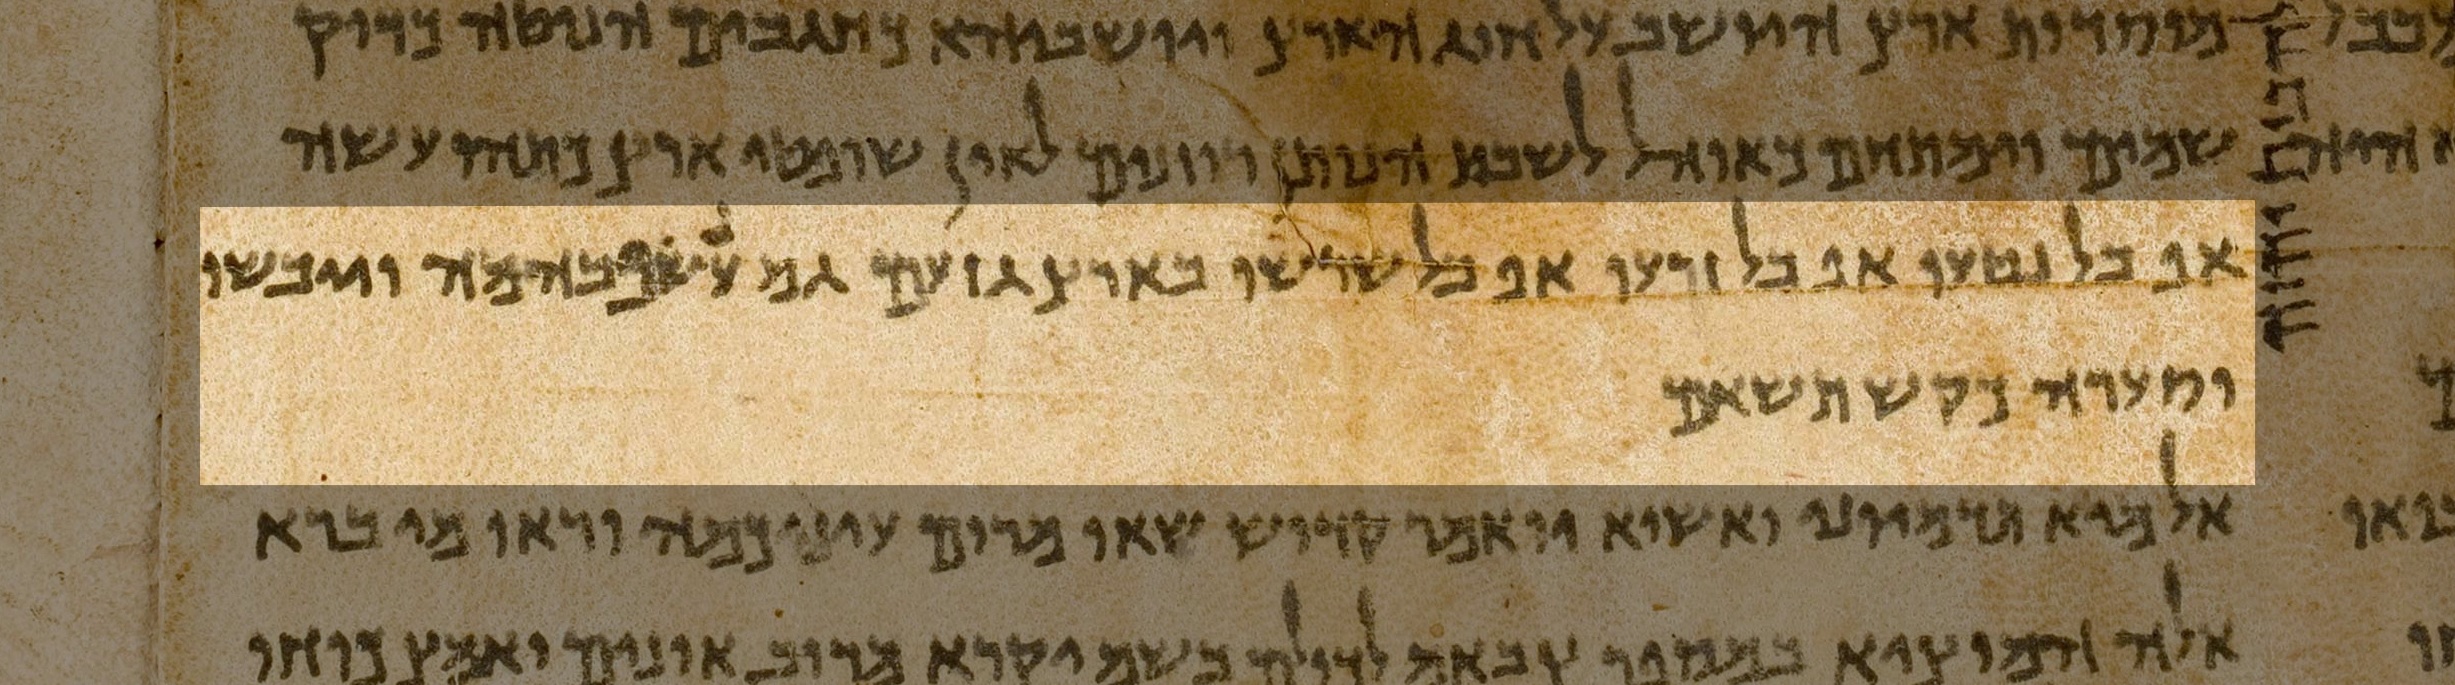 מוסדות ארץ היושב על חוג הארץ ויושביהא כחגבים הנוטה כדוק
שמים וימתחם כאוהל לשבת הנותן רוזנים לאין שופטי ארץ כתהו עשה
אפ בל נטעו אפ בל זרעו אפ בל שרשו בארץ גזעם גמ בהמה ויבשו
וסערה כקש תשאם
אל מיא תדמיוני ואשוא יואמר קדוש שאו מרום עיניכמה וראו מי ברא
אלה המוציא במספר צבאמ לכולם בשמ יקרא מרוב אונים ואמץ כוחו